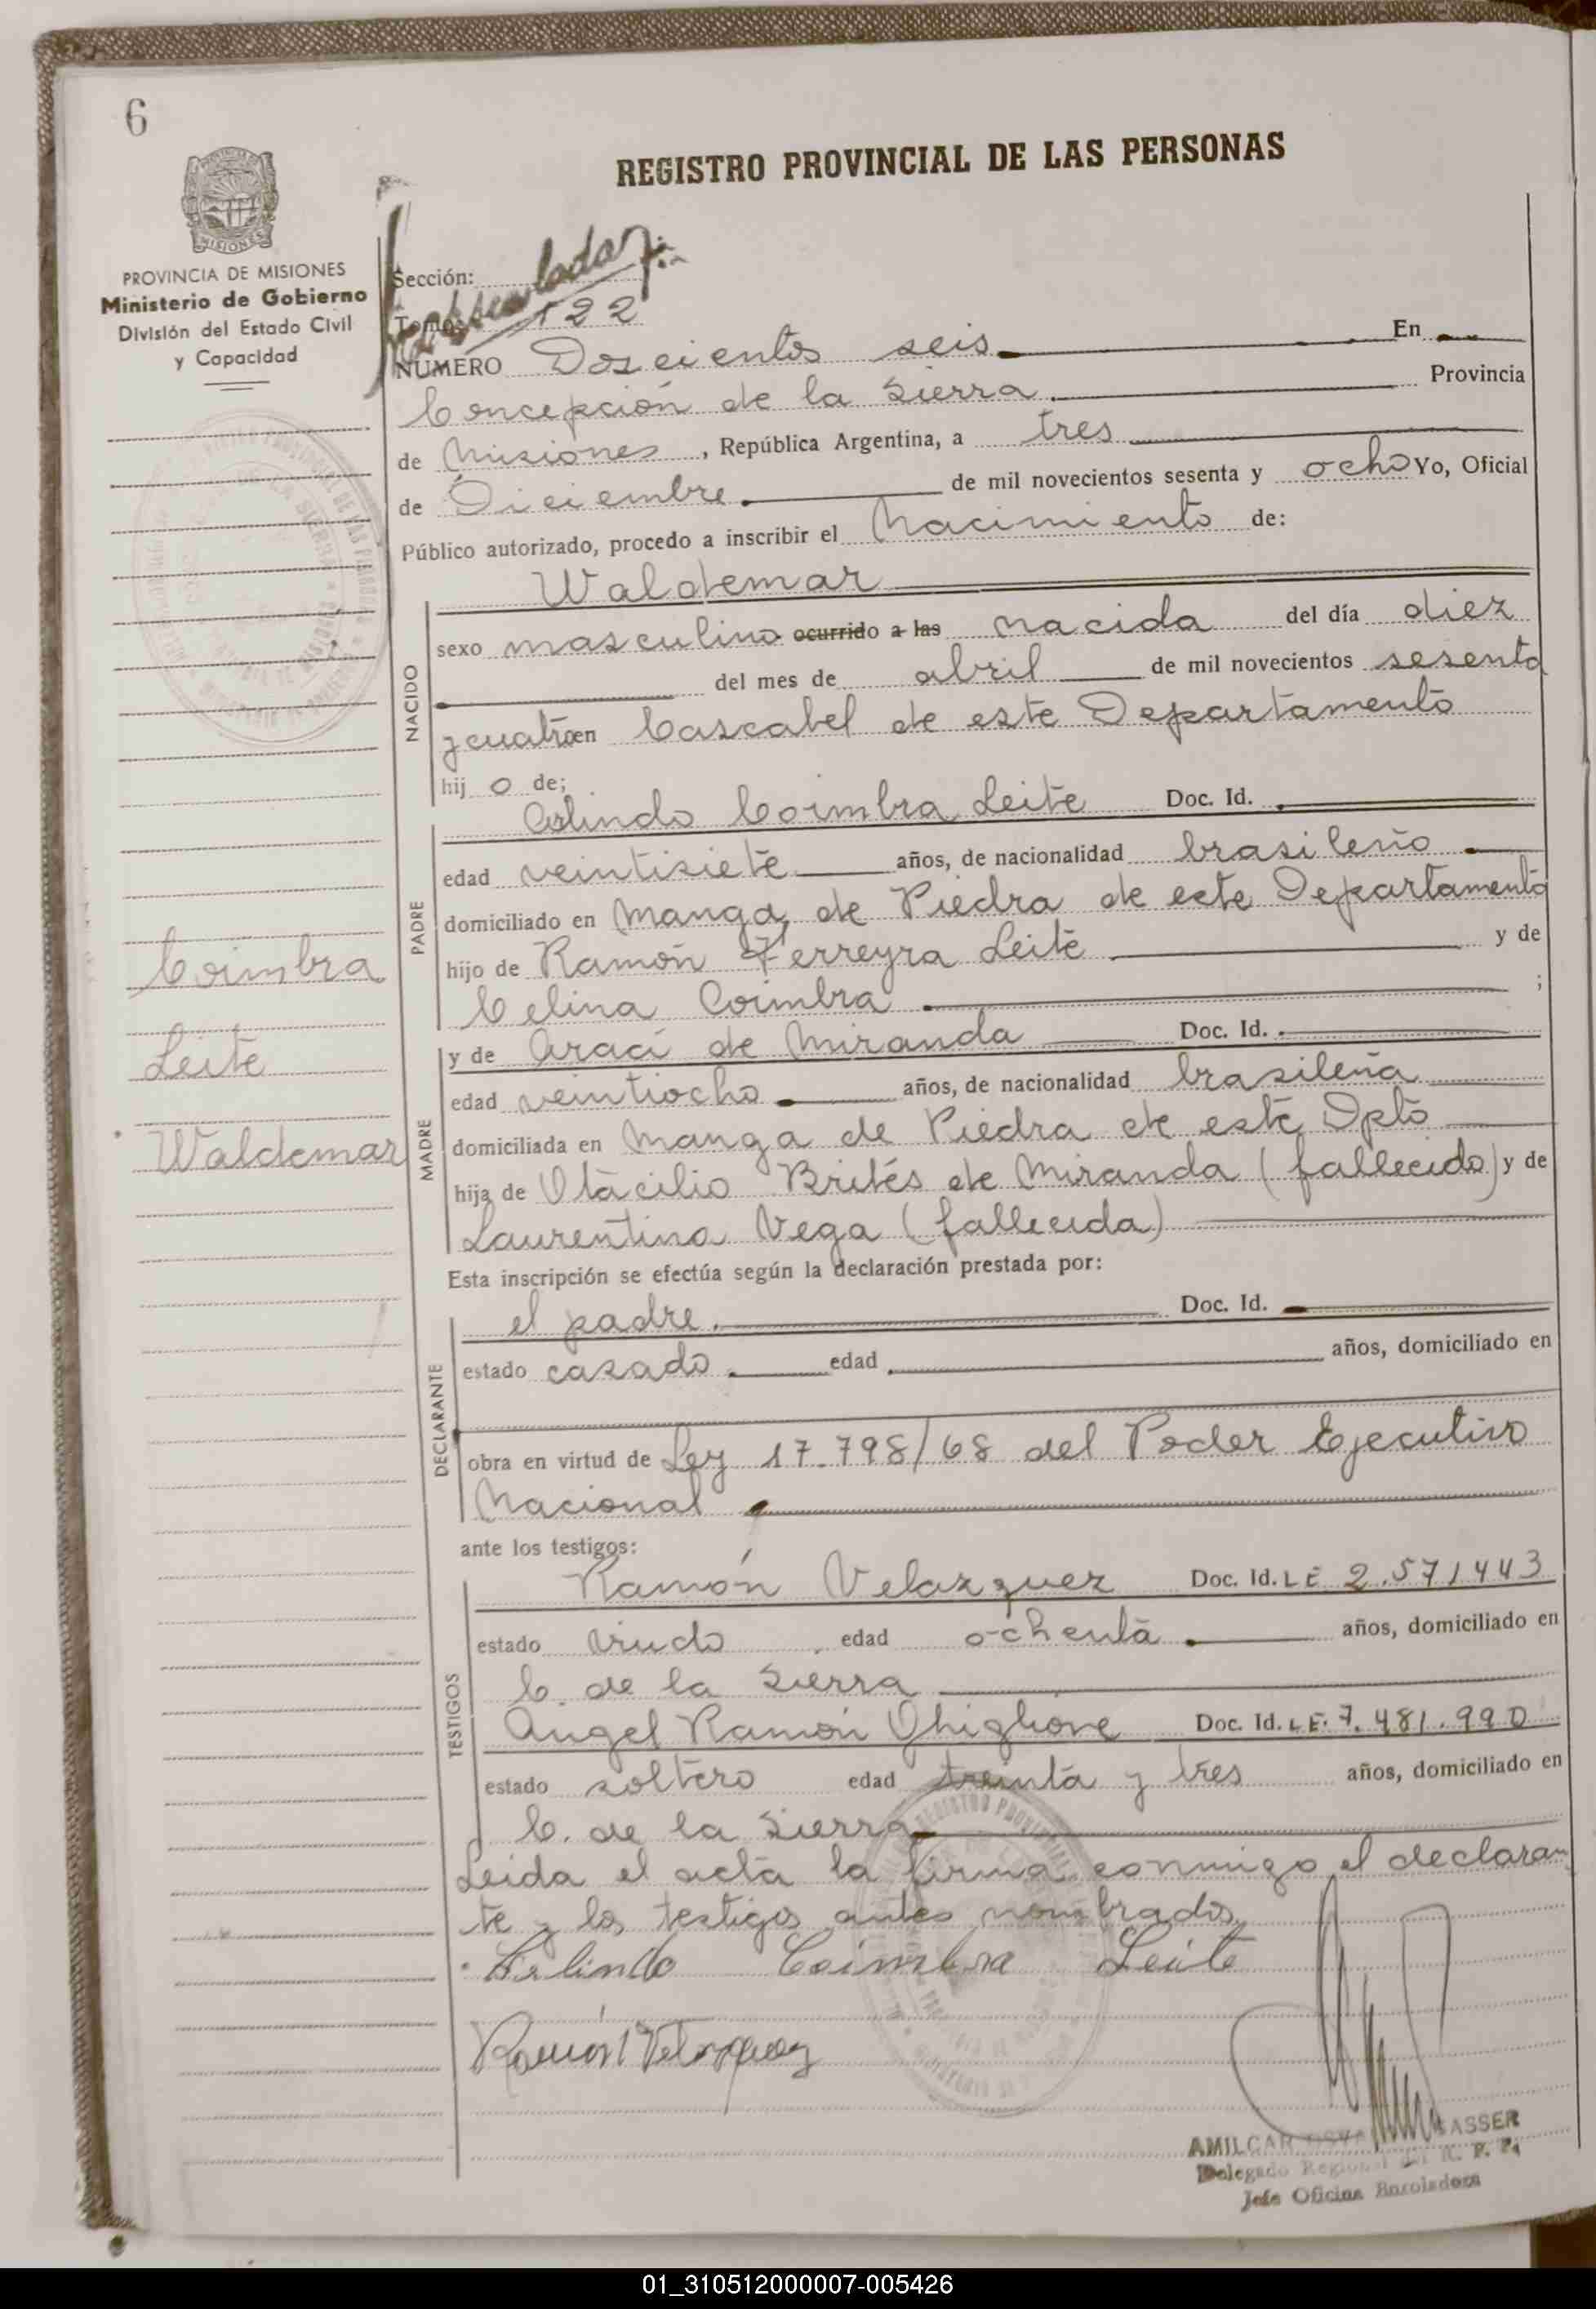 6
REGISTRO PROVINCIAL DE LAS PERSONAS
PROVINCIA DE MISIONES
Ministerio de Gobierno
División del Estado Civil
y Capacidad
Sección:
Tomo: 122
NUMERO Doscientos seis En
Concepción de la Sierra Provincia
de Misiones, República Argentina, a tres
de Diciembre de mil novecientos sesenta y ocho Yo, Oficial
Público autorizado, procedo a inscribir el Nacimiento de:
Waldemar
NACIDO
sexo masculino ocurrido a las nacida del día diez
del mes de abril de mil novecientos sesenta
y cuatro en Cascabel de este Departamento
hijo de;
PADRE
Coimbra Leite Doc. Id.
edad veintisiete años, de nacionalidad brasileño
domiciliado en Manga de Piedra de este Departamento
hijo de Ramón Ferreyra Leite y de
Celina Coimbra ;
Coimbra
Leite
Waldemar
MADRE
y de Araci de Miranda Doc. Id.
edad veintiocho años, de nacionalidad brasileña
domiciliada en Manga de Piedra de este Dpto
hija de Otacilio Brites de Miranda (fallecido) y de
Laurentina Vega (fallecida)
Esta inscripción se efectúa según la declaración prestada por:
DECLARANTE
el padre. Doc. Id.
estado casado edad años, domiciliado en
obra en virtud de Ley 17.798/68 del Poder Ejecutivo
Nacional
ante los testigos:
TESTIGOS
Ramón Velazquez Doc. Id. LE 2.571443
estado viudo edad ochenta años, domiciliado en
C. de la Sierra
Angel Ramón Ghiglione Doc. Id. LE. 7.481.990
estado soltero edad treinta y tres años, domiciliado en
C. de la Sierra
Leida el acta la firma conmigo el declaran
te y los testigos antes nombrados
Coimbra Leite
Ramón Velazquez
AMILCAR
Delegado Regional del R. P. P.
Jefe Oficina Enroladora
01_310512000007-005426